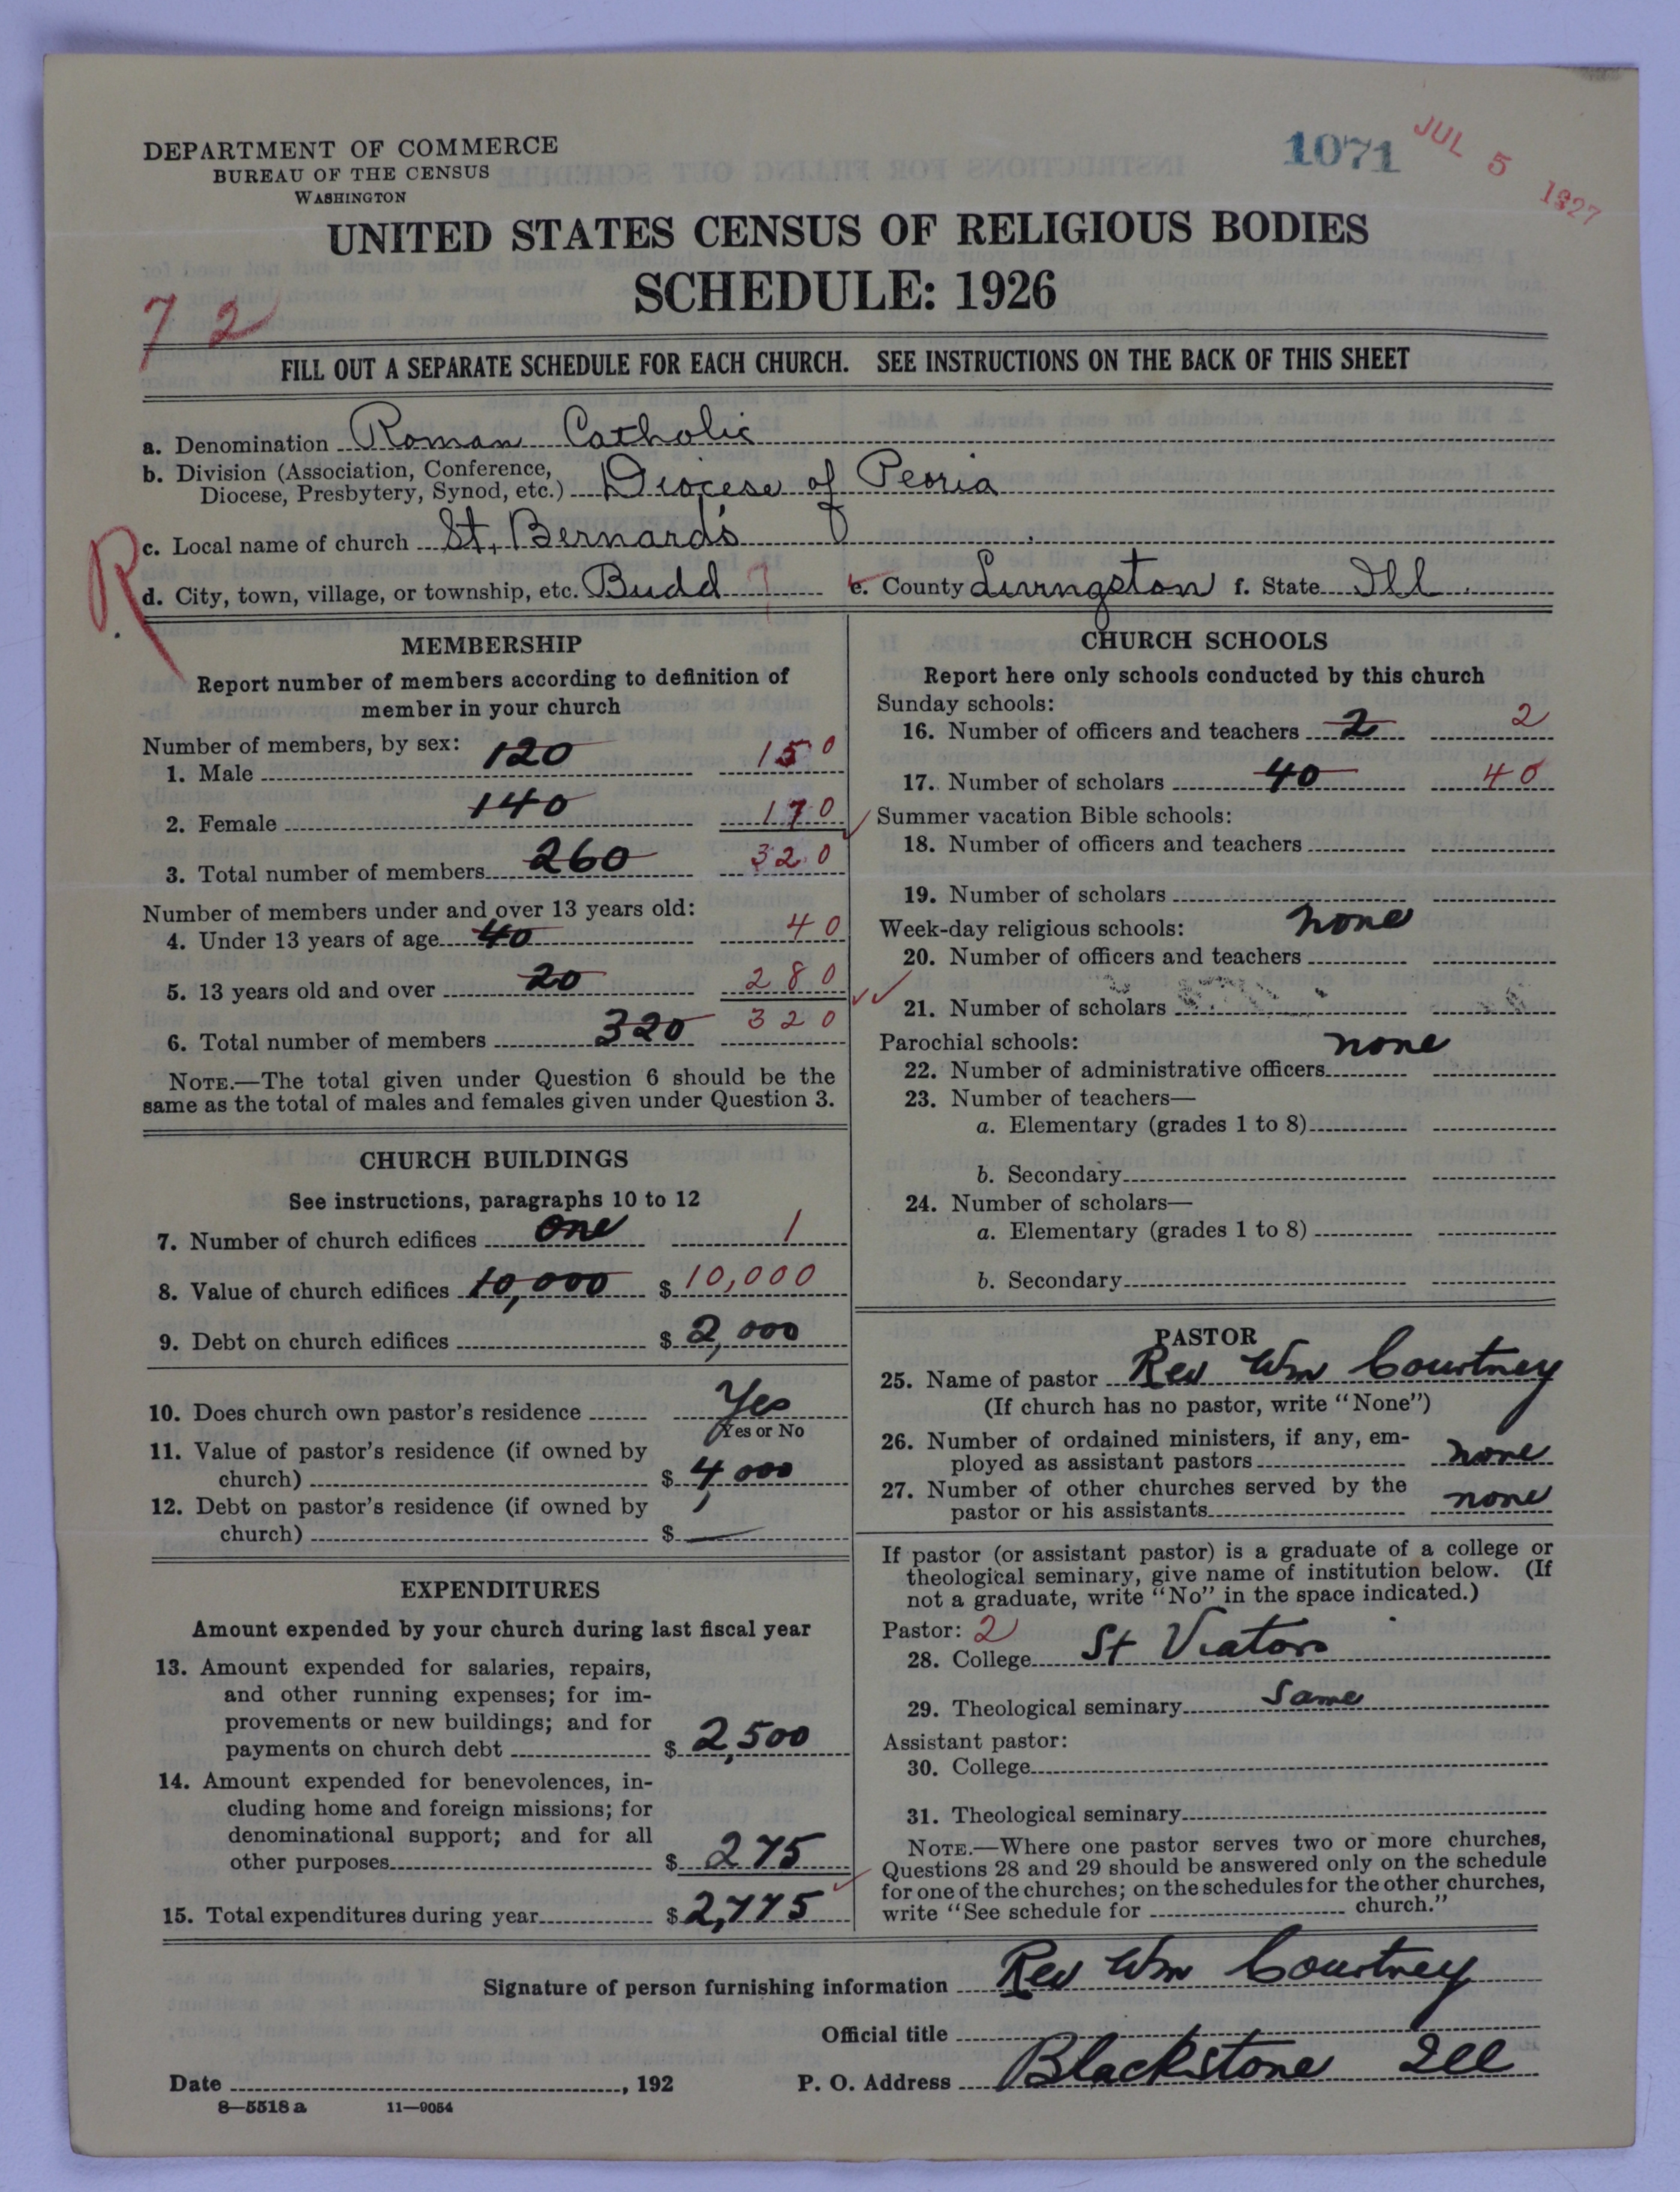 DEPARTMENT OF COMMERCE
BUREAU OF THE CENSUS
WASHINGTON
1071
JUL 5 1927
UNITED STATES CENSUS OF RELIGIOUS BODIES
SCHEDULE: 1926
72
FILL OUT A SEPARATE SCHEDULE FOR EACH CHURCH. SEE INSTRUCTIONS ON THE BACK OF THIS SHEET
a. Denomination Roman Catholic
b. Division (Association, Conference,
Diocese, Presbytery, Synod, etc.) Diocese of Peoria
R
c. Local name of church St. Bernard's
d. City, town, village, or township, etc. Budd ? e. County Livingston f. State Ill.
MEMBERSHIP
Report number of members according to definition of
member in your church
Number of members, by sex:
1. Male 120 150
2. Female 140 170
3. Total number of members 260 320
Number of members under and over 13 years old:
4. Under 13 years of age 40 40
5. 13 years old and over 20 280
6. Total number of members 320 320
NOTE.—The total given under Question 6 should be the
same as the total of males and females given under Question 3.
CHURCH BUILDINGS
See instructions, paragraphs 10 to 12
7. Number of church edifices one 1
8. Value of church edifices 10,000 $ 10,000
9. Debt on church edifices $ 2,000
10. Does church own pastor's residence Yes
Yes or No
11. Value of pastor's residence (if owned by
church) $ 4,000
12. Debt on pastor's residence (if owned by
church) $ —
EXPENDITURES
Amount expended by your church during last fiscal year
13. Amount expended for salaries, repairs,
and other running expenses; for im-
provements or new buildings; and for
payments on church debt $ 2,500
14. Amount expended for benevolences, in-
cluding home and foreign missions; for
denominational support; and for all
other purposes $ 275
15. Total expenditures during year $ 2,775
CHURCH SCHOOLS
Report here only schools conducted by this church
Sunday schools:
16. Number of officers and teachers 2 2
17. Number of scholars 40 40
Summer vacation Bible schools:
18. Number of officers and teachers
19. Number of scholars
Week-day religious schools: none
20. Number of officers and teachers
21. Number of scholars
Parochial schools: none
22. Number of administrative officers
23. Number of teachers—
a. Elementary (grades 1 to 8)
b. Secondary
24. Number of scholars—
a. Elementary (grades 1 to 8)
b. Secondary
PASTOR
25. Name of pastor Rev Wm Courtney
(If church has no pastor, write "None")
26. Number of ordained ministers, if any, em-
ployed as assistant pastors none
27. Number of other churches served by the
pastor or his assistants none
If pastor (or assistant pastor) is a graduate of a college or
theological seminary, give name of institution below. (If
not a graduate, write "No" in the space indicated.)
Pastor: 2
28. College St Viators
29. Theological seminary Same
Assistant pastor:
30. College
31. Theological seminary
NOTE.—Where one pastor serves two or more churches,
Questions 28 and 29 should be answered only on the schedule
for one of the churches; on the schedules for the other churches,
write "See schedule for church."
Signature of person furnishing information Rev Wm Courtney
Official title
Date , 192 P. O. Address Blackstone Ill
8—5518 a 11—9054